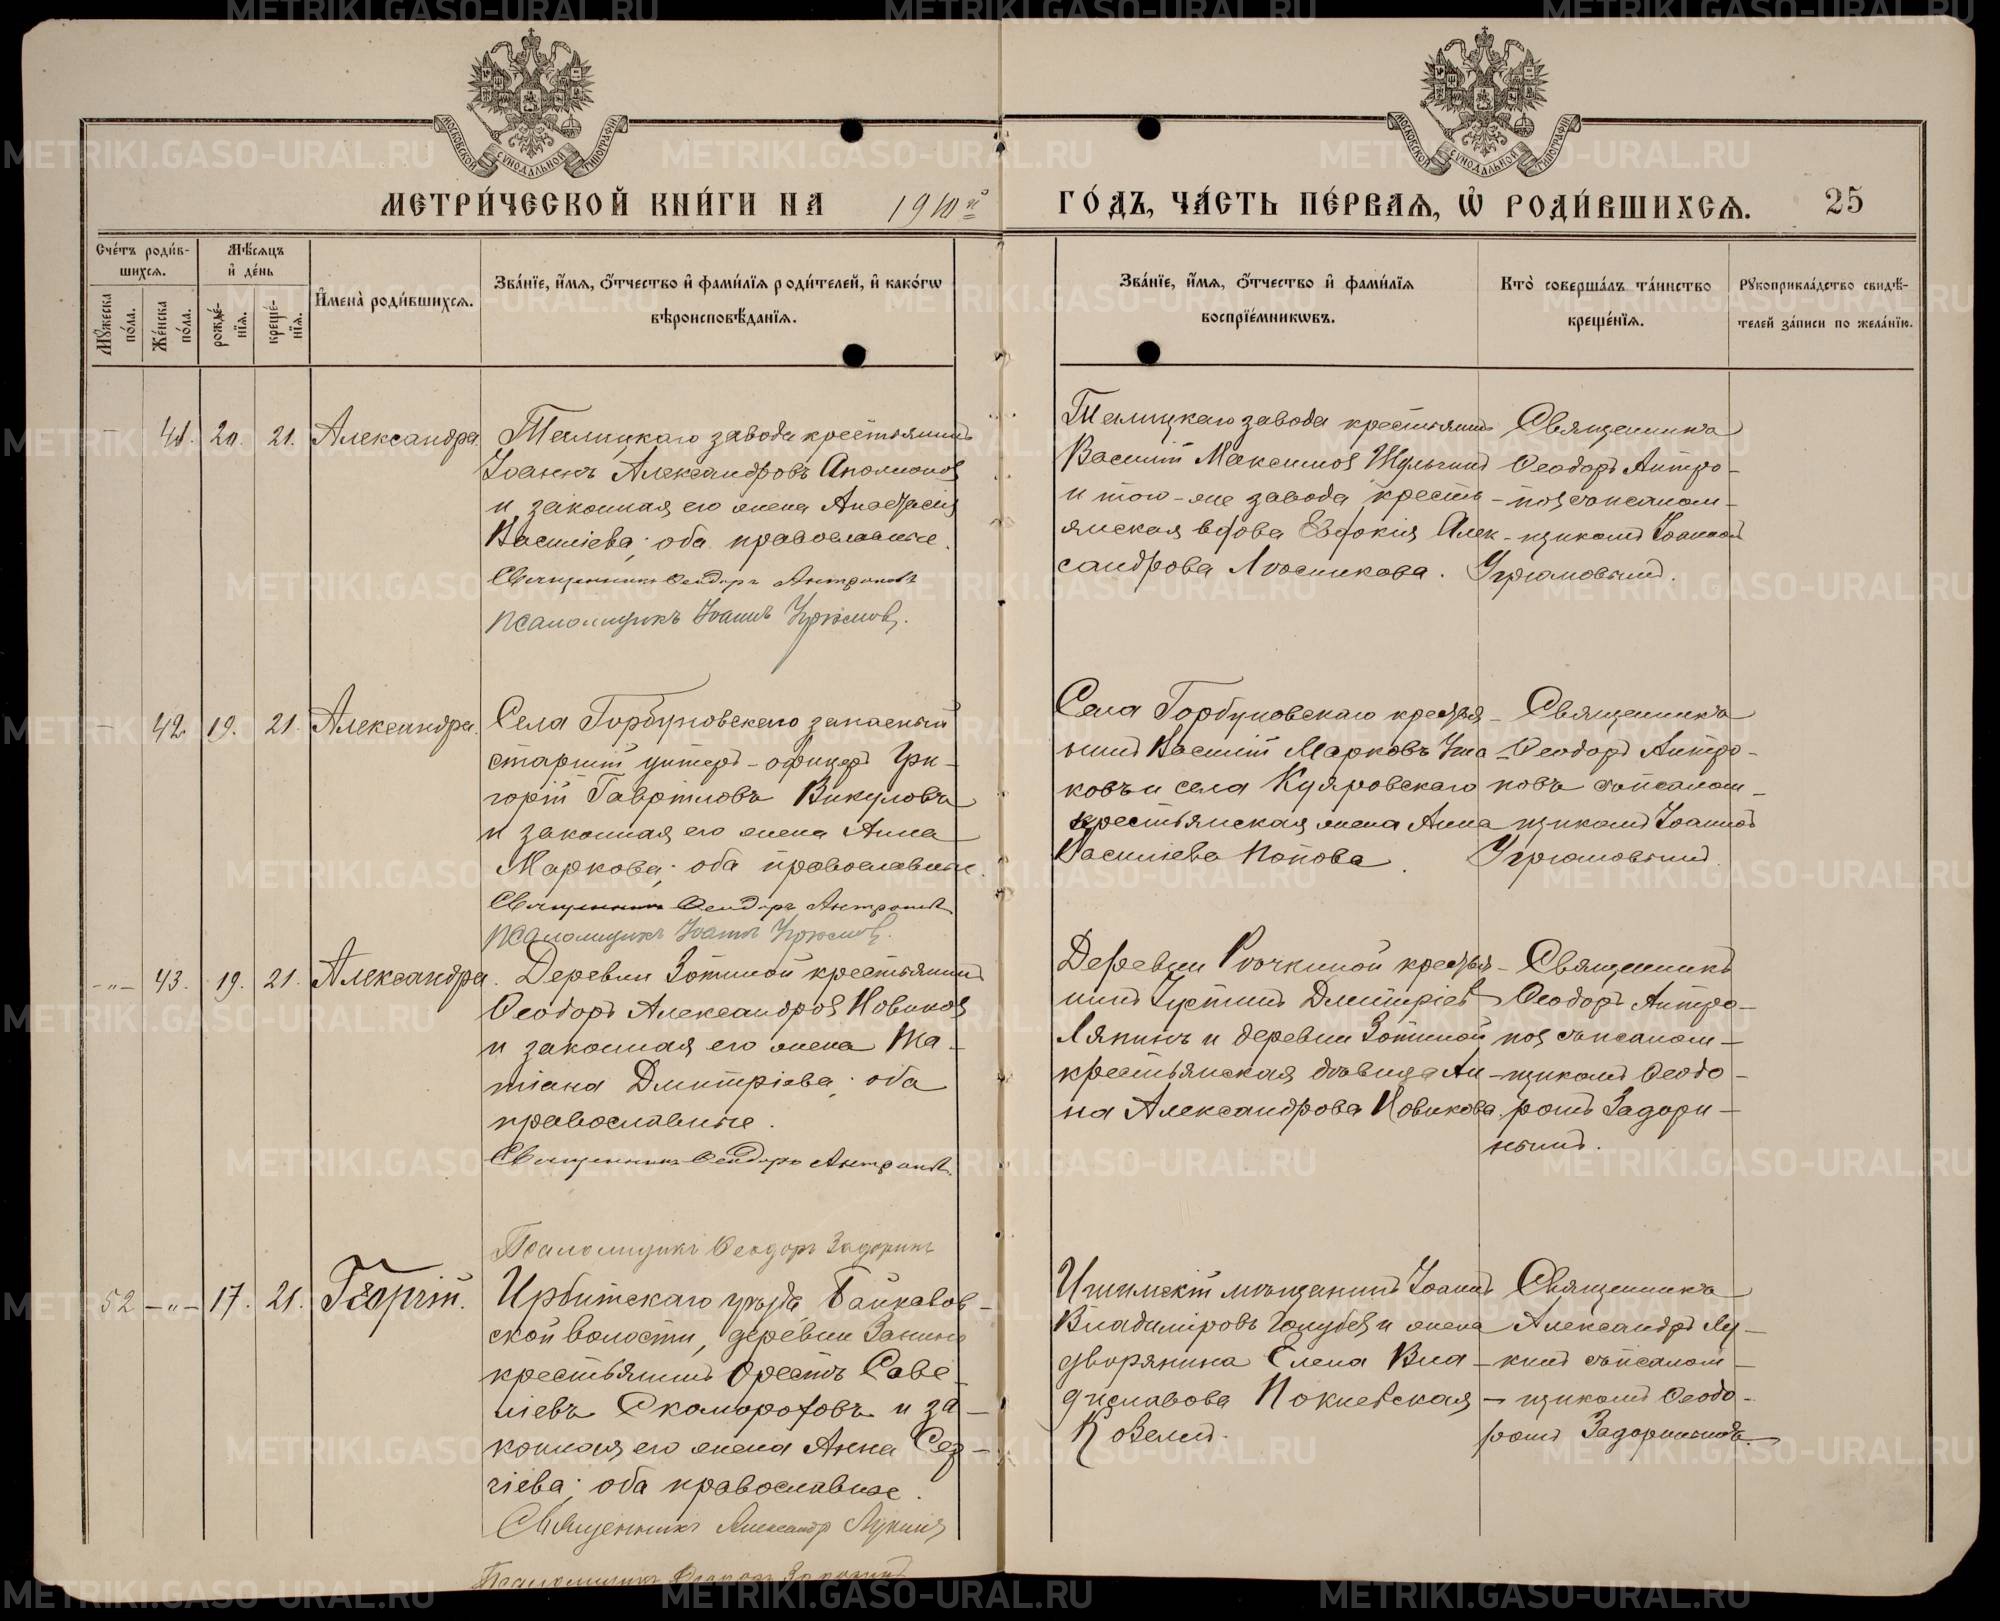 МЕТРИ́ЧЕСКОЙ КНИ́ГИ НА 1910й ГО́ДЪ, ЧА́СТЬ ПЕ́РВАѦ, Ѡ҆ РОДИ́ВШИХСѦ. 25
МОСКОВСКОЙ СѴНОДАЛЬНОЙ ТИПОГРАФІИ
МОСКОВСКОЙ СѴНОДАЛЬНОЙ ТИПОГРАФІИ
Сче́тъ роди́вшихсѧ.
Мꙋжеска по́ла.
Же́нска по́ла.
Мѣ́сѧцъ и҆ де́нь
рожде́нїѧ.
креще́нїѧ.
И҆мена̀ роди́вшихсѧ.
Зва́нїе, и҆́мѧ, ѻ҆́тчество и҆ фами́лїѧ роди́телей, и҆ како́гѡ
вѣроисповѣ́данїѧ.
Зва́нїе, и҆́мѧ, ѻ҆́тчество и҆ фами́лїѧ
воспрїе́мникѡвъ.
Кто̀ соверша́лъ та́инство
креще́нїѧ.
Рꙋкоприкла́дство свидѣ́-
телей за́писи по жела́нїю.
41. 20. 21. Александра.
Талицкаго завода крестьянинъ
Іоаннъ Александровъ
и законная его жена Анастасія
Василіева; оба православные.
Священникъ Ѳеодоръ Антроповъ
Псаломщикъ Іоаннъ Угрюмовъ.
Талицкаго завода крестьянинъ
Василій Максимовъ Шульгинъ
и того-же завода кресть-
янская вдова Евдокія Алек-
сандрова.
Священникъ
Ѳеодоръ Антро-
повъ съ псалом-
щикомъ Іоанномъ
Угрюмовымъ.
— 42. 19. 21. Александра.
Села Горбуновскаго запасный
старшій унтеръ-офицеръ Гри-
горій Гавріиловъ Викуловъ
и законная его жена Анна
Маркова; оба православные.
Священникъ Ѳеодоръ Антроповъ
Псаломщикъ Іоаннъ Угрюмовъ.
Села Горбуновскаго крестья-
нинъ Василій Марковъ Уша-
ковъ и села Куяровскаго
крестьянская жена Анна
Василіева Попова.
Священникъ
Ѳеодоръ Антро-
повъ съ псалом-
щикомъ Іоанномъ
Угрюмовымъ.
-"- 43. 19. 21. Александра.
Деревни Зотиной крестьянинъ
Ѳеодоръ Александровъ Новиковъ
и законная его жена Та-
тіана Димитріева; оба
православные.
Священникъ Ѳеодоръ Антроповъ.
Псаломщикъ Ѳеодоръ Задоринъ
Деревни крестья-
нинъ Іустинъ Димитріевъ
Ляпинъ и деревни Зотиной
крестьянская дѣвица Ан-
на Александрова Новикова.
Священникъ
Ѳеодоръ Антро-
повъ съ псалом-
щикомъ Ѳеодо-
ромъ Задори-
нымъ.
52 -"- 17. 21. Георгій.
Ирбитскаго уѣзда, Байкалов-
ской волости, деревни
крестьянинъ Орестъ Саве-
ліевъ Скомороховъ и за-
конная его жена Анна Сер-
гіева; оба православные.
Священникъ Александръ Лукинъ
Псаломщикъ Ѳеодоръ Задоринъ
Ишимскій мѣщанинъ Іоаннъ
Владиміровъ Голубевъ и жена
дворянина Елена Вла-
диславова Поклевская-
Козеллъ.
Священникъ
Александръ Лу-
кинъ съ псалом-
щикомъ Ѳеодо-
ромъ Задоринымъ.
METRIKI.GASO-URAL.RU